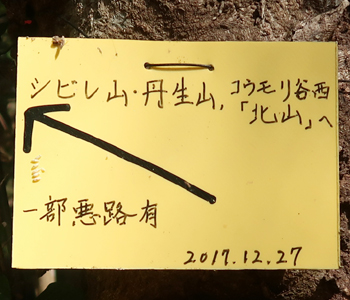 シビレ山・丹生山，コウモリ谷西
「北山」へ
一部悪路有
2017.12.27